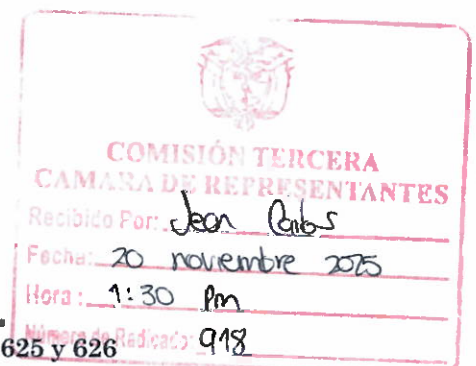 COMISIÓN TERCERA
CAMARA DE REPRESENTANTES
Recibido Por: Jean Carlos
Fecha: 20 noviembre 2025
Hora: 1:30 Pm
Número de Radicado: 918
625 y 626